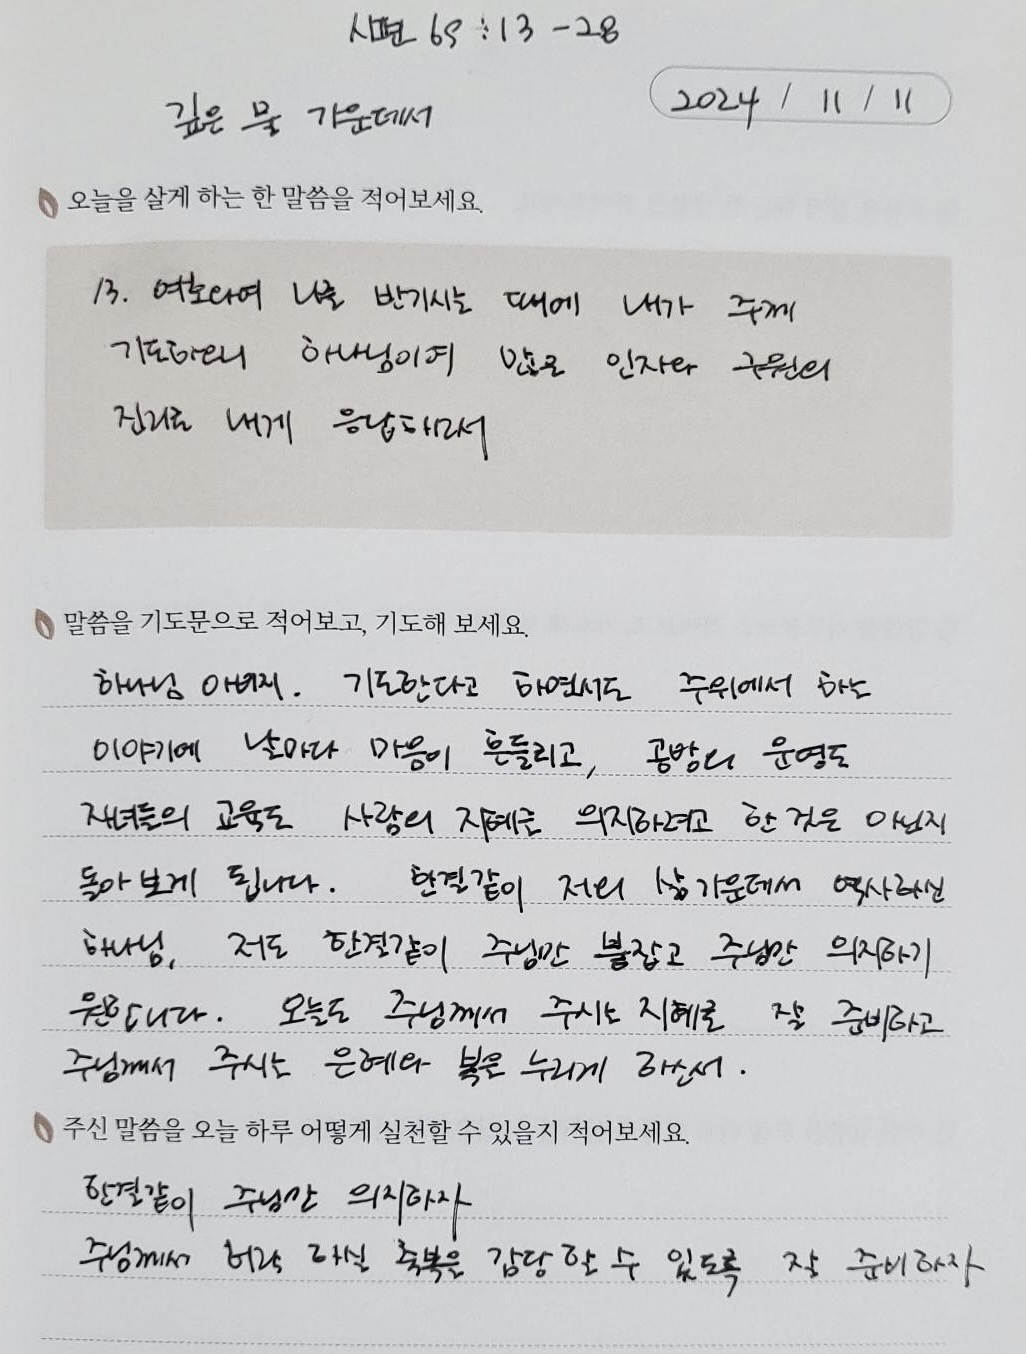 시편 69 : 13 - 28
깊은 물 가운데서
2024 / 11 / 11
오늘을 살게 하는 한 말씀을 적어보세요.
13. 여호와여 나를 반기시는 때에 내가 주께
기도하오니 하나님이여 많은 인자와 구원의
진리로 내게 응답하소서
말씀을 기도문으로 적어보고, 기도해 보세요.
하나님 아버지. 기도한다고 하면서도 주위에서 하는
이야기에 날마다 마음이 흔들리고, 공방의 운영도
자녀들의 교육도 사람의 지혜를 의지하려고 한 것은 아닌지
돌아보게 됩니다. 한결같이 저의 삶 가운데서 역사하신
하나님, 저도 한결같이 주님만 붙잡고 주님만 의지하기
원합니다. 오늘도 주님께서 주시는 지혜로 잘 준비하고
주님께서 주시는 은혜와 복을 누리게 하소서.
주신 말씀을 오늘 하루 어떻게 실천할 수 있을지 적어보세요.
한결같이 주님만 의지하자
주님께서 허락하실 축복을 감당할 수 있도록 잘 준비하자